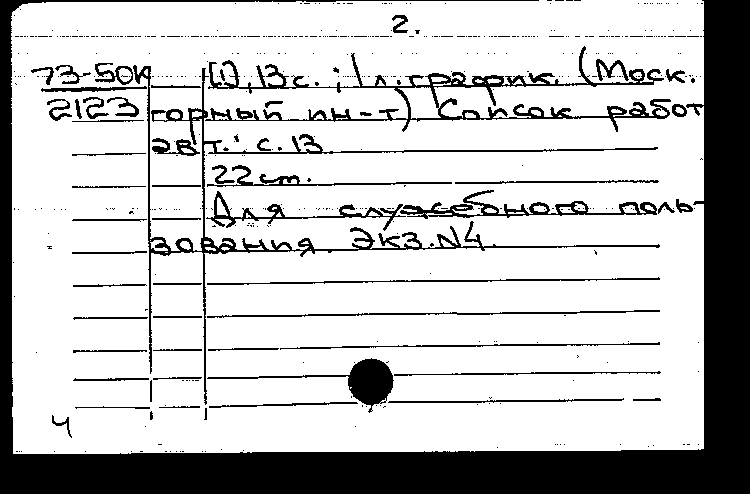 2.
73-50К [1], 13 с. ; 1 л. график. (Моск.
2123 горный ин-т) Список работ
авт.: с. 13
22 см.
Для служебного поль-
зования. Экз. N4.
Ч